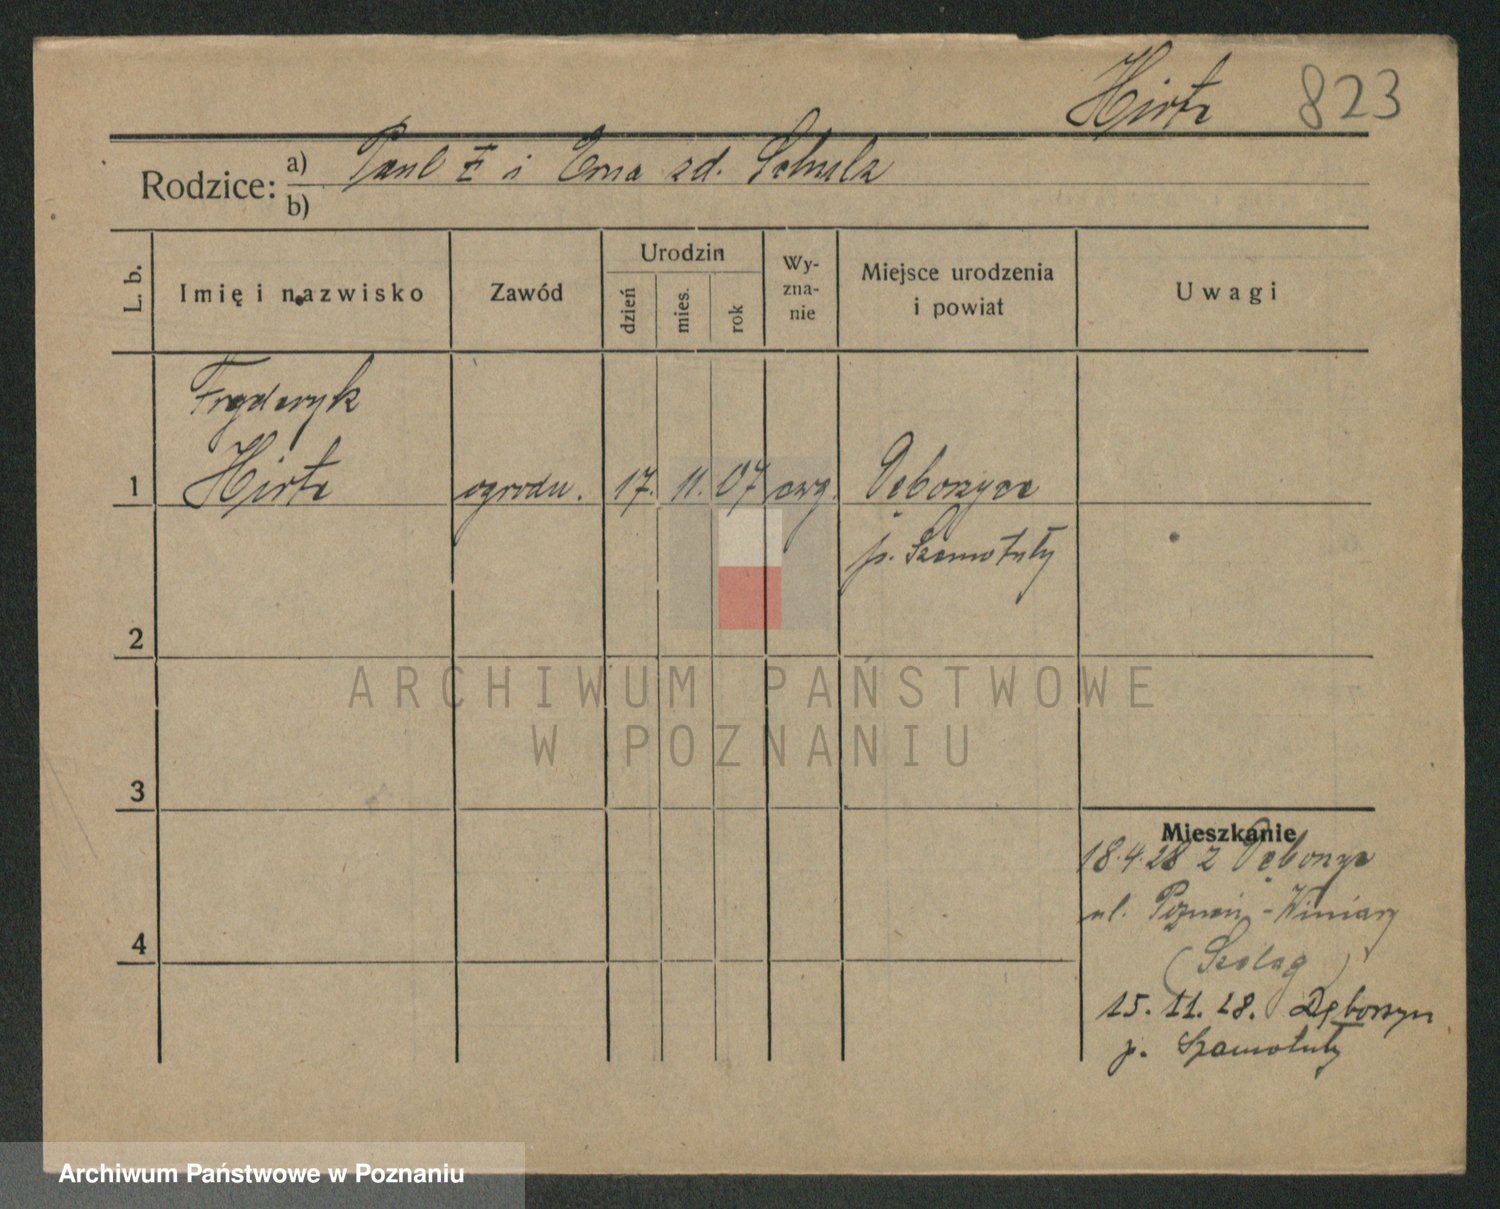 Hirte 823
Rodzice: a) Paul E i Erna zd. Schulz
b)
L. b.
Imię i nazwisko
Zawód
Urodzin
dzień
mies.
rok
Wy-
zna-
nie
Miejsce urodzenia
i powiat
Uwagi
Fryderyk
1 Hirte ogrodn. 17. 11. 07 ewg. Dęborzyce
p. Szamotuły
2
ARCHIWUM PAŃSTWOWE
W POZNANIU
3
Mieszkanie
18.4.28 z Dęborzyc
ul. Poznań - Winiary
4
(Szeląg)
15. 11. 28. Dęborzyce
p. Szamotuły
Archiwum Państwowe w Poznaniu